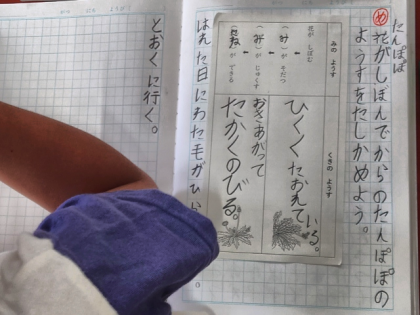 たんぽぽ
め 花がしぼんでからのたんぽぽの
ようすをたしかめよう。
みの ようす
花が しぼむ
(み)が そだつ
(み)が じゅくす
(たね)が できる
くきの ようす
ひくくたおれて
いる。
おきあがって
たかくのびる。
はれた日にわた毛がひ
とおくに行く。